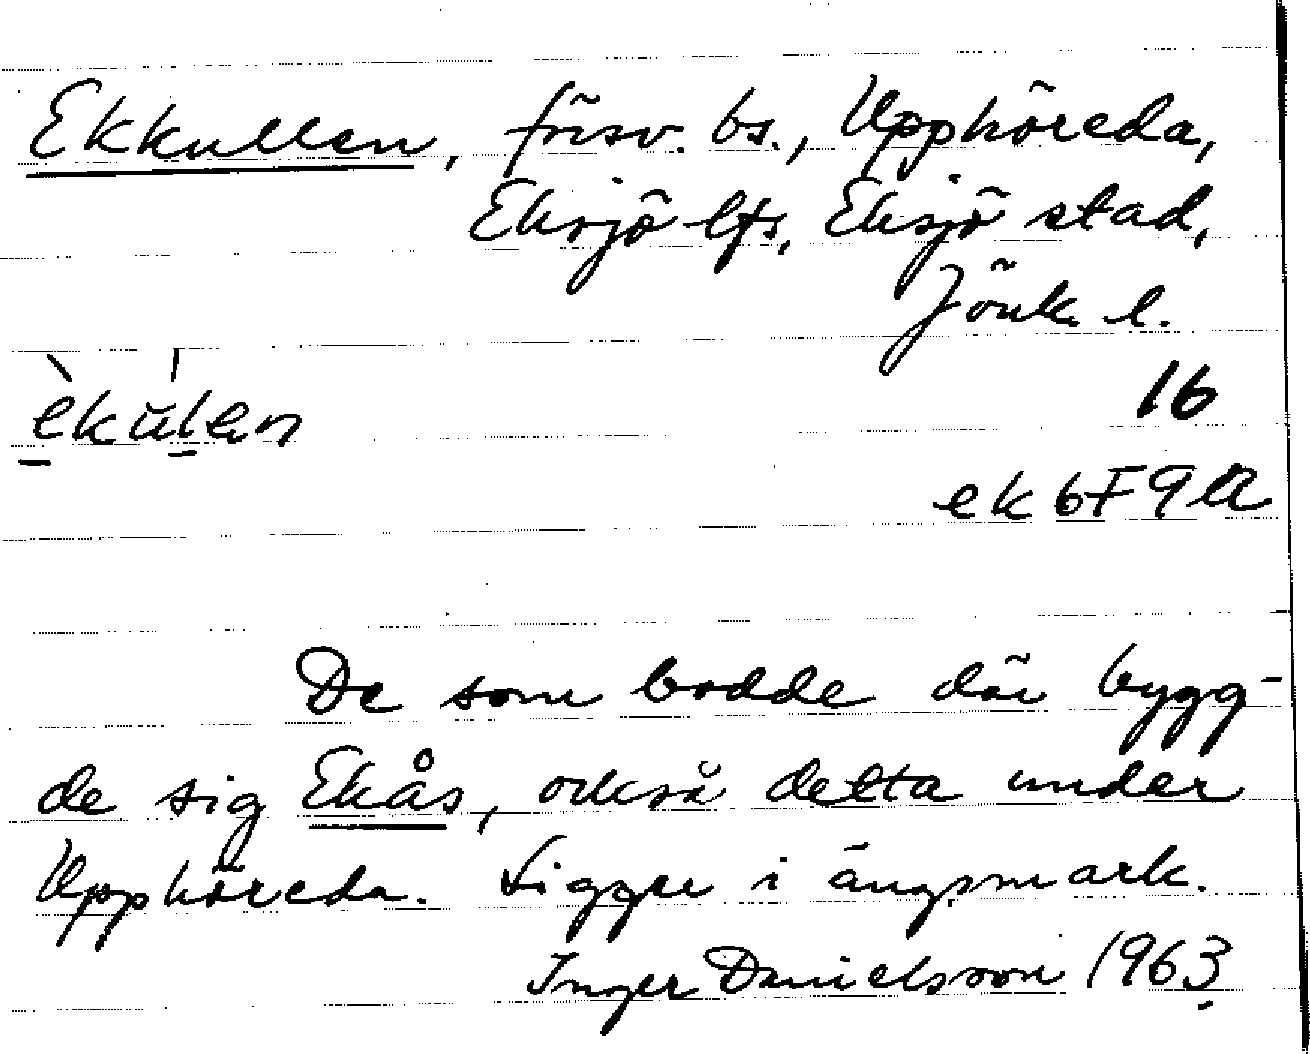 Ekkullen, försv. bs., Upphöreda,
Eksjö lfs, Eksjö stad,
Jönk. l.
èkŭ́len
16
ek 6F9a
De som bodde där bygg-
de sig Ekås, också detta under
Upphöreda. Ligger i ängsmark.
Inger Danielsson 1963